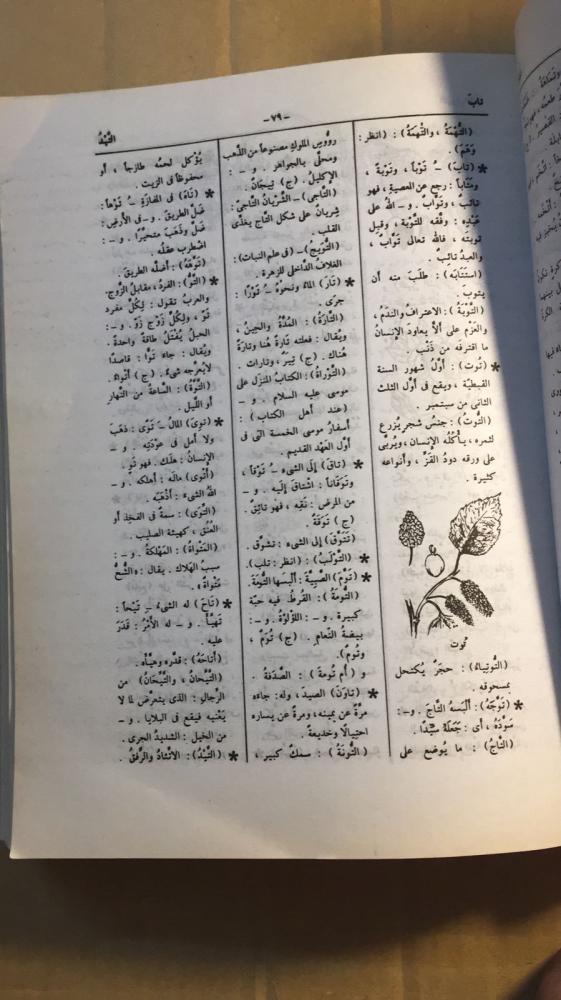 تاب
-٧٩-
التَّيْدُ
(التُّهْمَةُ ، والتُّهَمَةُ) : (انظر :
وَهَمَ) .
* (تابَ) ـُ تَوْباً ، وتَوْبَة ،
ومَتَاباً : رجع عن المعصية . فهو
تائب ، وتَوَّاب . و – اللهُ على
عَبْدِه : وفقه للتَّوْبة ، وقَبِل
توبته ، فالله تعالى تَوَّاب ،
والعبد تائب .
(استَتَابَه) : طَلَبَ منه أن
يتوب .
(التَّوْبَةُ) : الاعترافُ والندَمُ ،
والعزم على ألاَّ يعاود الإنسانُ
ما اقترفه من ذَنْب .
* (توت) : أوَّلُ شهور السنة
القبطيَّة ، ويقع في أوَّل الثلث
الثاني من سبتمبر .
(التُّوتُ) : جنسُ شجر يُزرع
لثمره ، يأكُلُهُ الإنسان ، ويُربَّى
على ورقه دودُ القَزِّ ، وأنواعه
كثيرة .
توت
(التُّوتِيَاءُ) : حجَرٌ يُكتحل
بمسحوقه .
* (تَوَّجَهُ) : ألبَسهُ التَّاجَ . و – :
سَوَّدَهُ ، أى : جَعَلَهُ سَيِّدًا .
(التَّاجُ) : ما يُوضع على
رؤُوس الملوك مصنوعاً من الذهب
ومحلًّى بالجواهر . و – :
الإكليلُ . (ج) تِيجَانٌ .
(التَّاجى) – الشَّرْيانُ التَّاجىُّ :
شِريانٌ على شكل التَّاج يغذِّى
القلب .
(التُّوَيجُ) – (فى علم النبات) :
الغلافُ الدَّاخلى للزهرة .
* (تَارَ) الماءُ ونحوهُ ـُ تَوْرًا :
جرَى .
(التَّارَةُ) : المُدَّةُ والحِينُ ،
ويُقال : فعلته تارةً هُنا وتارَةً
هناك . (ج) تِيَرٌ ، وتَارات .
(التَّوْرَاةُ) : الكتابُ المنزل على
موسى عليه السلام . و –
(عند أهل الكتاب) :
أسفارُ موسى الخمسة التى فى
أوَّل العَهْد القديم .
* (تاقَ) إلَى الشيء ـُ تَوْقاً ،
وتَوَقاناً : اشتاقَ إلَيْه . و –
من المرَض : نَقِه ، فهو تائِقٌ .
(ج) تَوَقَةٌ .
(تَتَوَّقَ) إلى الشىء : تشوَّق .
* (التَّوْلَبُ) : (انظر : تلب) .
* (تَوَّمَ) الصَّبِيَّةَ : ألبَسَها التُّومَةَ .
(التُّومَةُ) : القُرطُ فيه حَبّة
كبيرة . و – : اللُّؤلُؤَةُ . و – :
بيضةُ النَّعام . (ج) تُومٌ ،
وتُوَمٌ) .
و (أم تُومةَ) : الصَّدَفةُ .
* (تاوَنَ) الصيدَ ، وله : جاءه
مرَّةً عن يمينه ، ومرةً عن يساره
احتيالًا وخديعةً .
(التُّونَةُ) : سمكٌ كبير ،
يُؤكل لحمُه طازجاً ، أو
محفوظاً فى الزيت .
* (تَاهَ) فى المفازةِ ـُ تَوْهاً :
ضَلَّ الطريقَ . و – فى الأرضِ :
ضَلَّ وذَهَبَ متحيِّرًا . و – :
اضْطرب عقله .
(تَوَّهَهُ) : أضَلَّه الطريقَ .
* (التَّوُّ) : الفردُ ، مقابل الزَّوج .
والعربُ تقول : لكلِّ مفرد
تَوّ ، ولِكلِّ زَوْج زَوّ . و – :
الحبلُ يُفْتَلُ طاقةً واحدةً .
ويُقال : جاءَ تَوًّا : قاصدًا
لايُعرجه شىءٌ . (ج) أتْوَاءٌ .
(التَّوَّةُ) : السَّاعةُ من النَّهار
أو اللَّيل .
* (تَوِىَ) المالُ ـَ تَوًى : ذهَبَ
ولا أمل فى عَوْدَتِه . و –
الإنسانُ : هلَكَ . فهو تَوٍ .
(أتْوَى) مالَه : أهلكه . و –
اللهُ الشىءَ : أذْهَبَه .
(التِّوَى) : سمةٌ فى الفخذِ أو
العُنُق ، كهيئة الصليب .
(المَتْواةُ) : المَهْلكةُ . و – :
سببُ الهَلاك . يقال : « الشُّحُّ
مَتْواة » .
* (تَاحَ) له الشىءُ ـِ تَيْحاً :
تَهَيَّأَ . و – له الأمْرُ : قُدِّرَ
عليه .
(أتَاحَهُ) : قدَّره وهيَّأه .
(التَّيْحَانُ ، والتَّيِّحَانُ) من
الرِّجالِ : الذى يتعرَّض لما لا
يَعْنيه فيقع فى البلايا . و –
من الخيل : الشديدُ الجرى .
* (التَّيْدُ) : الاتِّئادُ والرِّفْقُ .